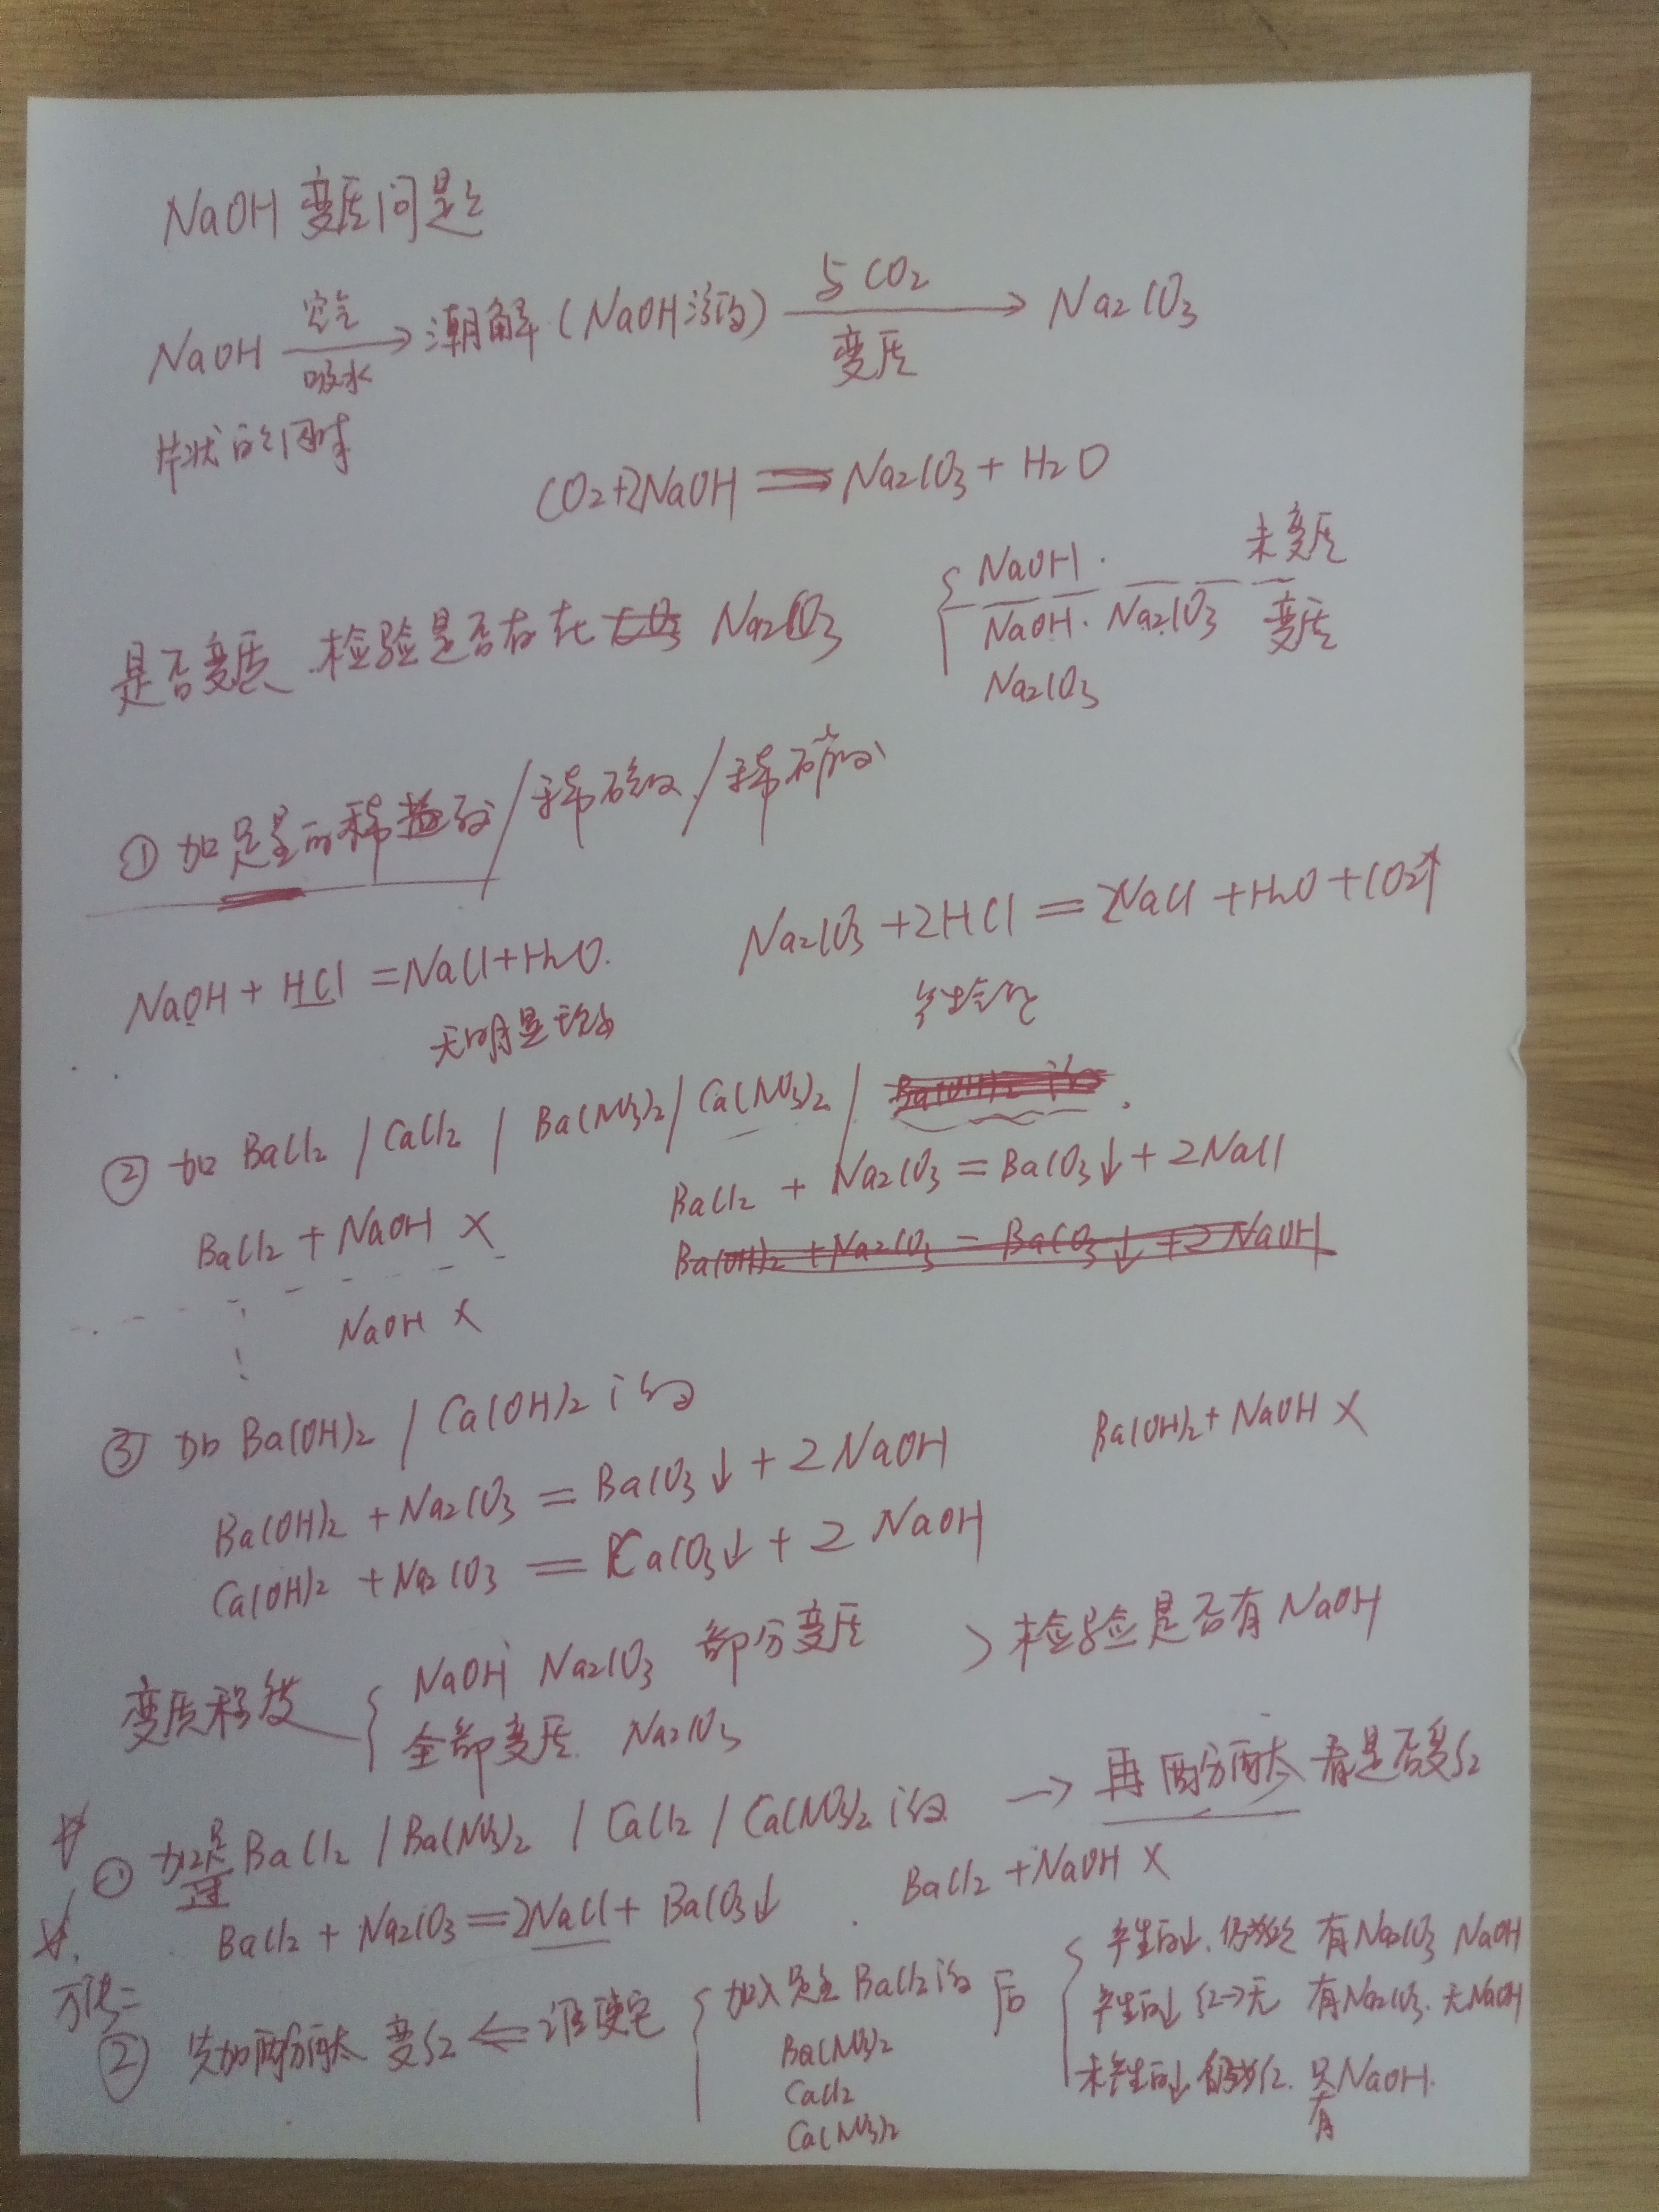 NaOH 变质问题
NaOH 空气 吸水 → 潮解 (NaOH溶液) 与CO2 变质 → Na2CO3
片状的 固体
CO2+2NaOH = Na2CO3 + H2O
是否变质 检验是否存在 Na2CO3
{ NaOH. 未变质
NaOH. Na2CO3 变质
Na2CO3
① 加足量的稀盐酸/稀硫酸/稀硝酸
NaOH + HCl = NaCl+H2O. Na2CO3 +2HCl = 2NaCl +H2O +CO2↑
无明显现象 产生气泡
② 加 BaCl2 / CaCl2 / Ba(NO3)2 / Ca(NO3)2 / Ba(OH)2 溶液
BaCl2 + NaOH × BaCl2 + Na2CO3 = BaCO3↓ + 2NaCl
Ba(OH)2 + Na2CO3 = BaCO3↓ +2 NaOH
NaOH ×
③ 加 Ba(OH)2 / Ca(OH)2 溶液
Ba(OH)2 + Na2CO3 = BaCO3↓ + 2NaOH Ba(OH)2 + NaOH ×
Ca(OH)2 + Na2CO3 = CaCO3↓ + 2 NaOH
变质程度 { NaOH Na2CO3 部分变质 > 检验是否有 NaOH
全部变质. Na2CO3
① 加足量 BaCl2 / Ba(NO3)2 / CaCl2 / Ca(NO3)2 溶液 → 再酚酞 看是否变红
过
BaCl2 + Na2CO3 = 2NaCl + BaCO3↓ . BaCl2 + NaOH ×
方法二
② 先加酚酞 变红 ⇐ 谁使它 { 加入足量 BaCl2溶液 后
Ba(NO3)2
CaCl2
Ca(NO3)2
{ 产生白↓. 仍为红 有Na2CO3 NaOH
产生白↓ 红→无 有Na2CO3. 无NaOH
未产生白↓ 仍为红. 只有NaOH.